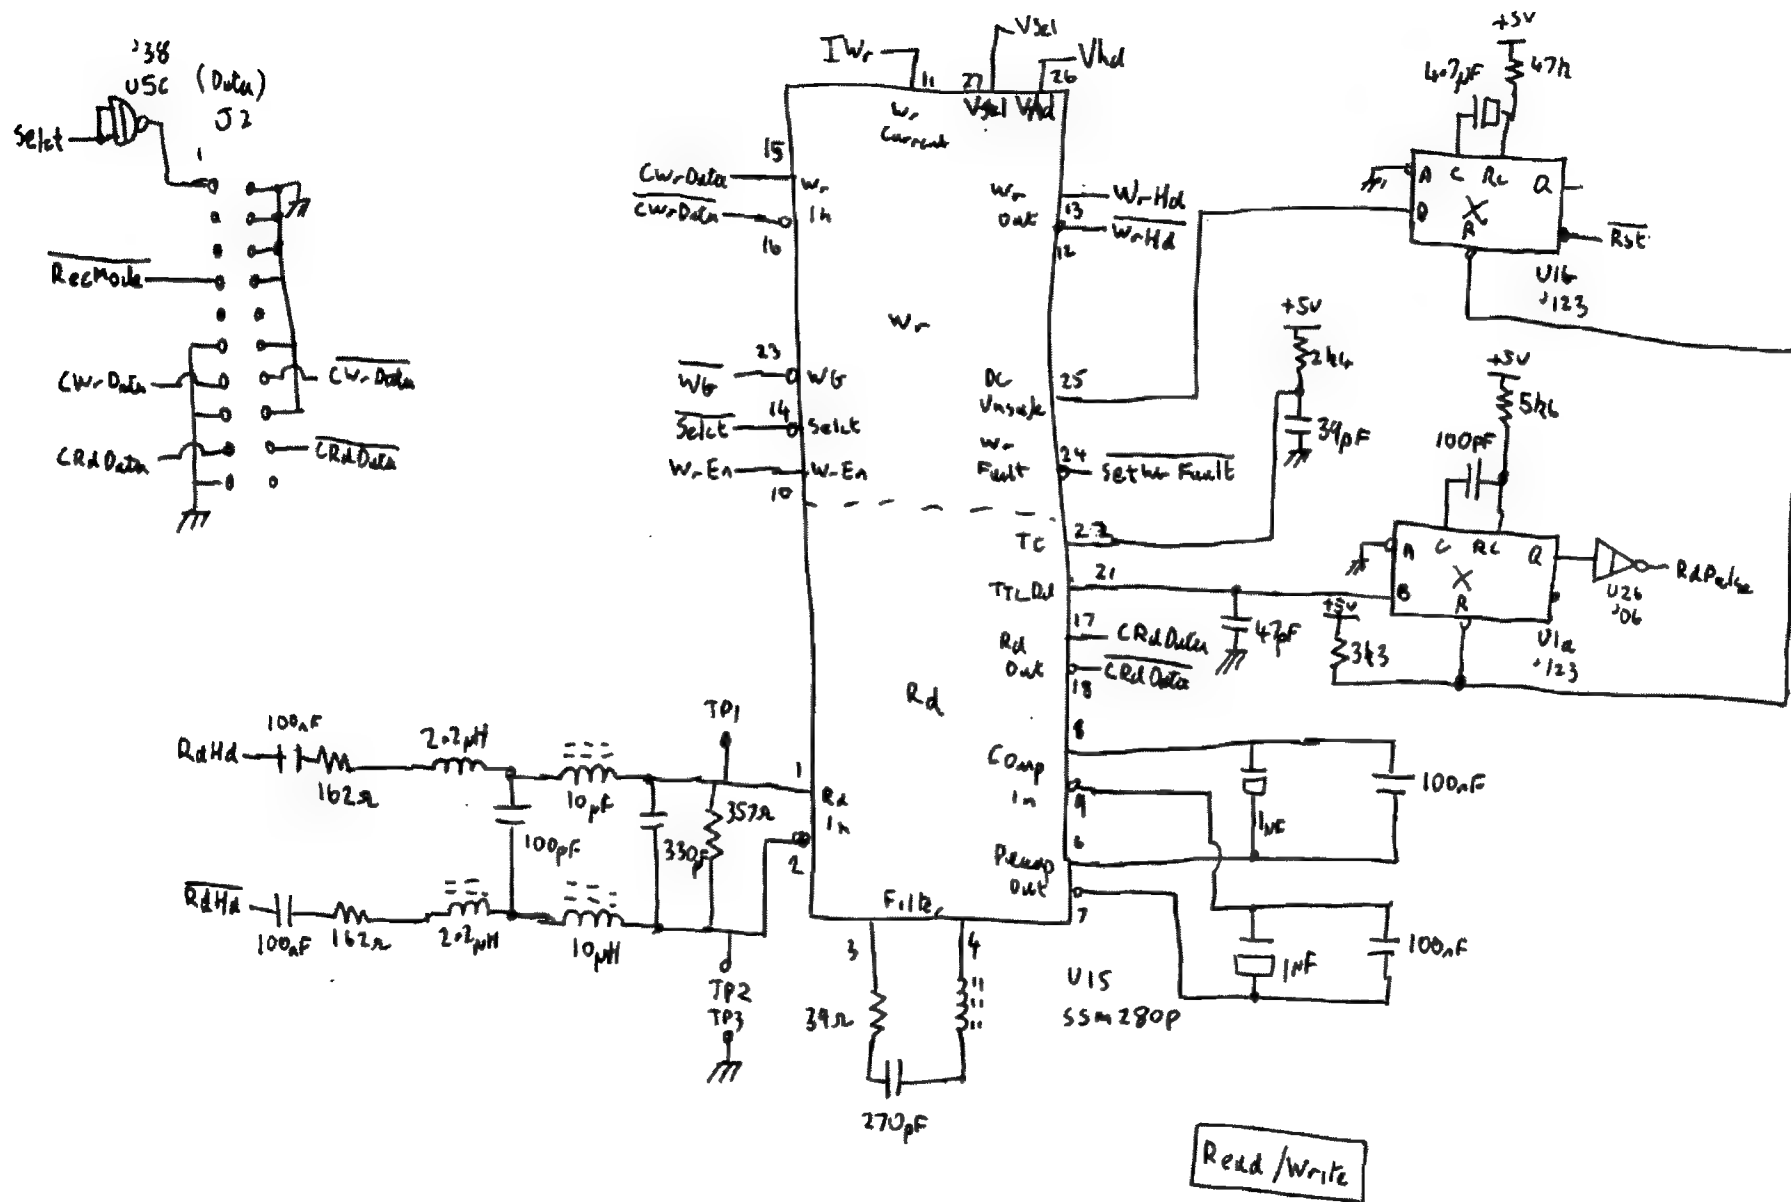 '38
U5C (Data)
J2
Selct
1
RecMode
CWrData
CWrData
CRdData
CRdData
IWr
11
27
Vsel
26
Vhd
Wr
Current
Vsel
Vhd
15
CWrData
Wr
In
CWrData
16
Wr
Out
WrHd
13
WrHd
12
Wr
23
WG
WG
14
Selct
Selct
WrEn
WrEn
10
DC
Unsafe
25
Wr
Fault
24
SetWrFault
TC
TTL Dd
21
Rd
Out
17
CRdData
CRdData
18
Rd
8
Comp
In
9
6
Preamp
Out
7
1
Rd
In
2
Filter
3
4
U15
SSM280P
+5V
4.7µF
47k
A
C
RC
Q
B
X
R
Rst
U1b
'123
+5V
2k4
39pF
+5V
5k6
100pF
A
C
RC
Q
B
X
R
RdPulse
U2b
'06
+5V
3k3
U1a
'123
47pF
1µF
100nF
1µF
100nF
RdHd
100nF
162Ω
2.2µH
10µF
TP1
100pF
330pF
357Ω
RdHd
100nF
162Ω
2.2µH
10µH
TP2
TP3
39Ω
270pF
Read/Write